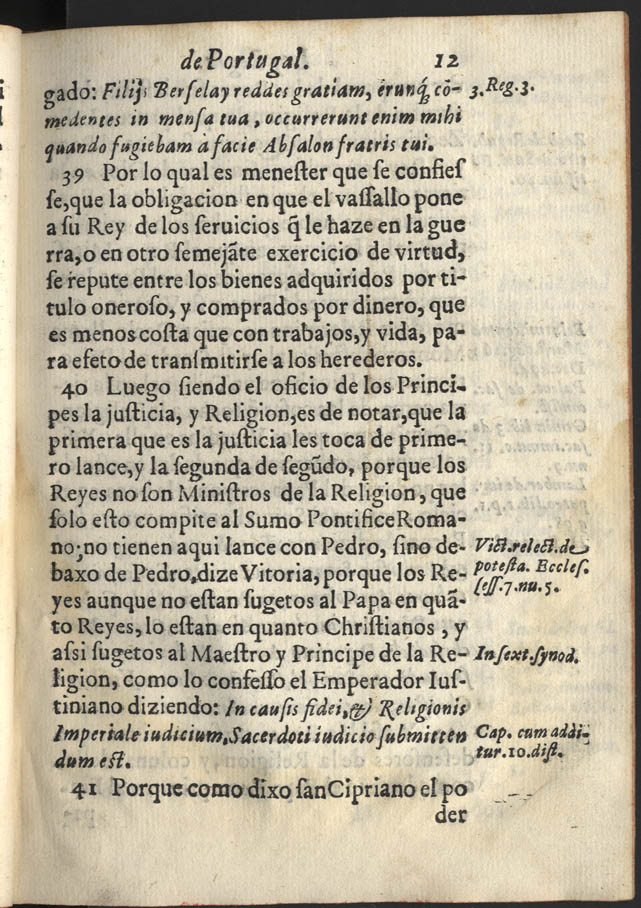 de Portugal. 12
gado: Filijs Berselay reddes gratiam, erunq́; cō-
medentes in mensa tua, occurrerunt enim mihi
quando fugiebam à facie Absalon fratris tui.
3. Reg. 3.
39 Por lo qual es menester que se confies
se, que la obligacion en que el vassallo pone
a su Rey de los seruicios q̃ le haze en la gue
rra, o en otro semejãte exercicio de virtud,
se repute entre los bienes adquiridos por ti-
tulo oneroso, y comprados por dinero, que
es menos costa que con trabajos, y vida, pa-
ra efeto de transmitirse a los herederos.
40 Luego siendo el oficio de los Princi-
pes la justicia, y Religion, es de notar, que la
primera que es la justicia les toca de prime-
ro lance, y la segunda de segũdo, porque los
Reyes no son Ministros de la Religion, que
solo esto compite al Sumo Pontifice Roma-
no; no tienen aqui lance con Pedro, sino de-
baxo de Pedro, dize Vitoria, porque los Re-
yes aunque no estan sugetos al Papa en quã-
to Reyes, lo estan en quanto Christianos, y
assi sugetos al Maestro y Principe de la Re-
ligion, como lo confesso el Emperador Ius-
tiniano diziendo: In causis fidei, & Religionis
Imperiale iudicium, Sacerdoti iudicio submitten
dum est.
Vict. relect. de
potesta. Eccles.
sess. 7. nu. 5.
In sext. synod.
Cap. cum addi-
tur. 10. dist.
41 Porque como dixo san Cipriano el po
der